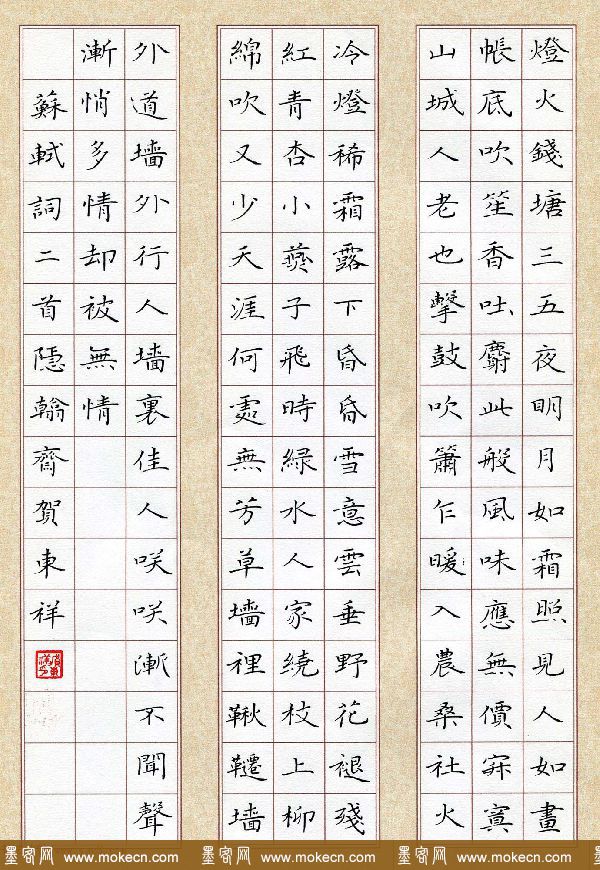 燈火錢塘三五夜明月如霜照見人如畫
帳底吹笙香吐麝此般風味應無價寂寞
山城人老也擊鼓吹簫乍暖入農桑社火
冷燈稀霜露下昏昏雪意雲垂野花褪殘
紅青杏小燕子飛時綠水人家繞枝上柳
綿吹又少天涯何處無芳草墻裡鞦韆墻
外道墻外行人墻裏佳人咲咲漸不聞聲
漸悄多情却被無情
蘇軾詞二首隱翰齊賀東祥
墨客网 www.mokecn.com 墨客网 www.mokecn.com 墨客网 www.mokecn.com